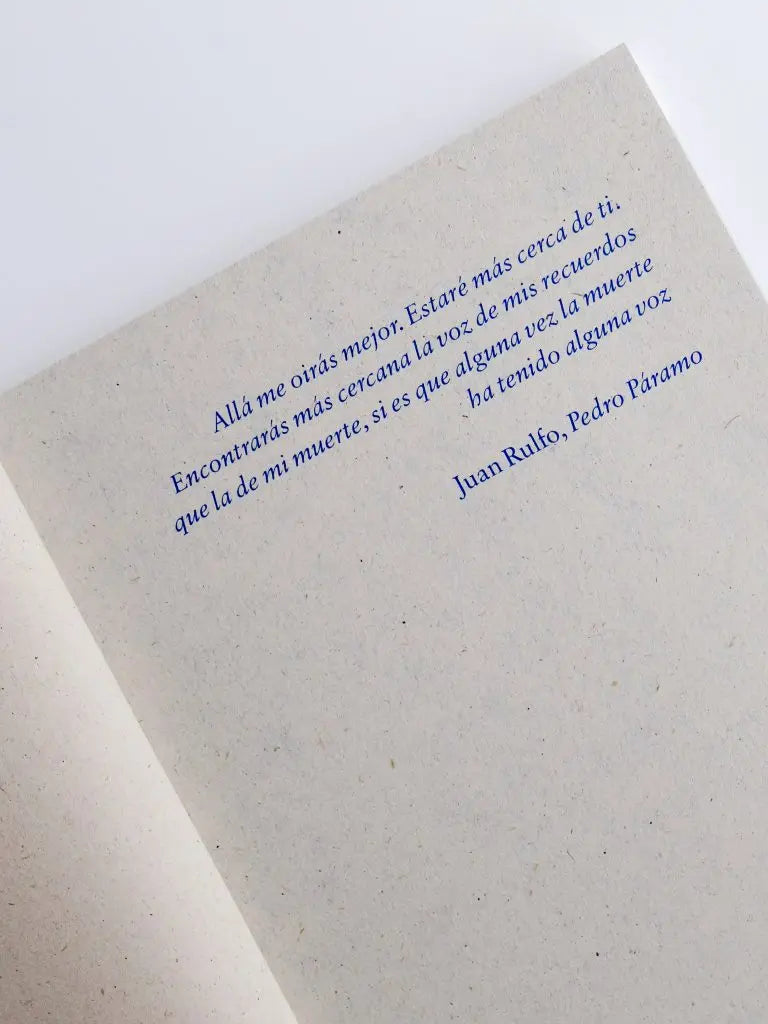 Allá me oirás mejor. Estaré más cerca de ti.
Encontrarás más cercana la voz de mis recuerdos
que la de mi muerte, si es que alguna vez la muerte
ha tenido alguna voz
Juan Rulfo, Pedro Páramo